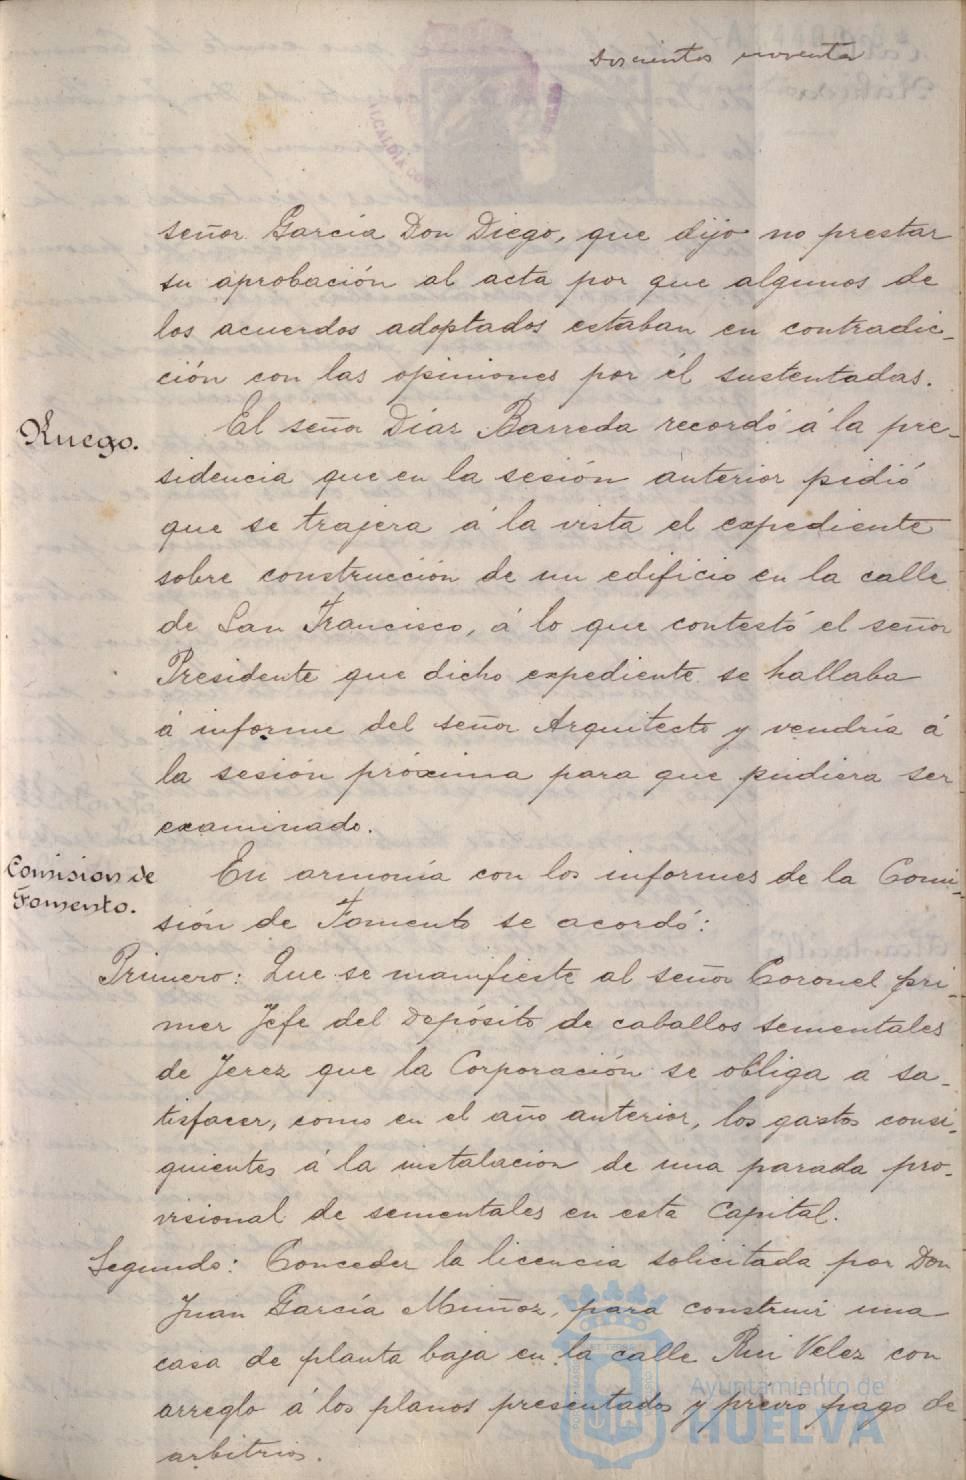 Doscientos noventa
señor García Don Diego, que dijo no prestar
su aprobación al acta por que algunos de
los acuerdos adoptados estaban en contradic-
ción con las opiniones por él sustentadas.
Ruego.
El señor Díaz Barreda recordó á la pre-
sidencia que en la sesión anterior pidió
que se trajera á la vista el expediente
sobre construcción de un edificio en la calle
de San Francisco, á lo que contestó el señor
Presidente que dicho expediente se hallaba
á informe del señor Arquitecto y vendría á
la sesión próxima para que pudiera ser
examinado.
Comision de
Fomento.
En armonía con los informes de la Comi-
sión de Fomento se acordó:
Primero: Que se manifieste al señor Coronel pri-
mer Jefe del Depósito de caballos sementales
de Jerez que la Corporación se obliga á sa-
tisfacer, como en el año anterior, los gastos consi-
guientes á la instalacion de una parada pro-
visional de sementales en esta Capital.
Segundo: Conceder la licencia solicitada por Don
Juan García Muñoz, para construir una
casa de planta baja en la calle Rui Velez con
arreglo á los planos presentados y previo pago de
arbitrios.
Ayuntamiento de
HUELVA